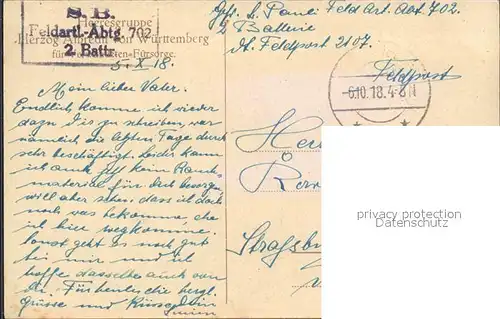 S. B.
Feldartl.-Abtg. 702.
2. Battr.
Heeresgruppe
Herzog Albrecht von Württemberg
für Soldaten-Fürsorge.
Gefr. L. Pauli Feld Art. Abt 702.
2 Batterie
Dt. Feldpost 2107.
Feldpost
-6.10.18.4-8N
5. X. 18.
Mein lieber Vater.
Endlich komme ich wieder
dazu Dir zu schreiben, war
nämlich die letzten Tage durch
sehr beschäftigt. Leider kann
ich auch kein Rauch-
material für dich besorgen
will aber sehen, dass ich doch
noch was bekomme, ehe
ich hier wegkomme.
Sonst geht es noch gut
bei mir und ich
hoffe dasselbe auch von
dir. Für heute die herzl.
Grüsse und Küsse Dein
Strassbu
privacy protection
Datenschutz